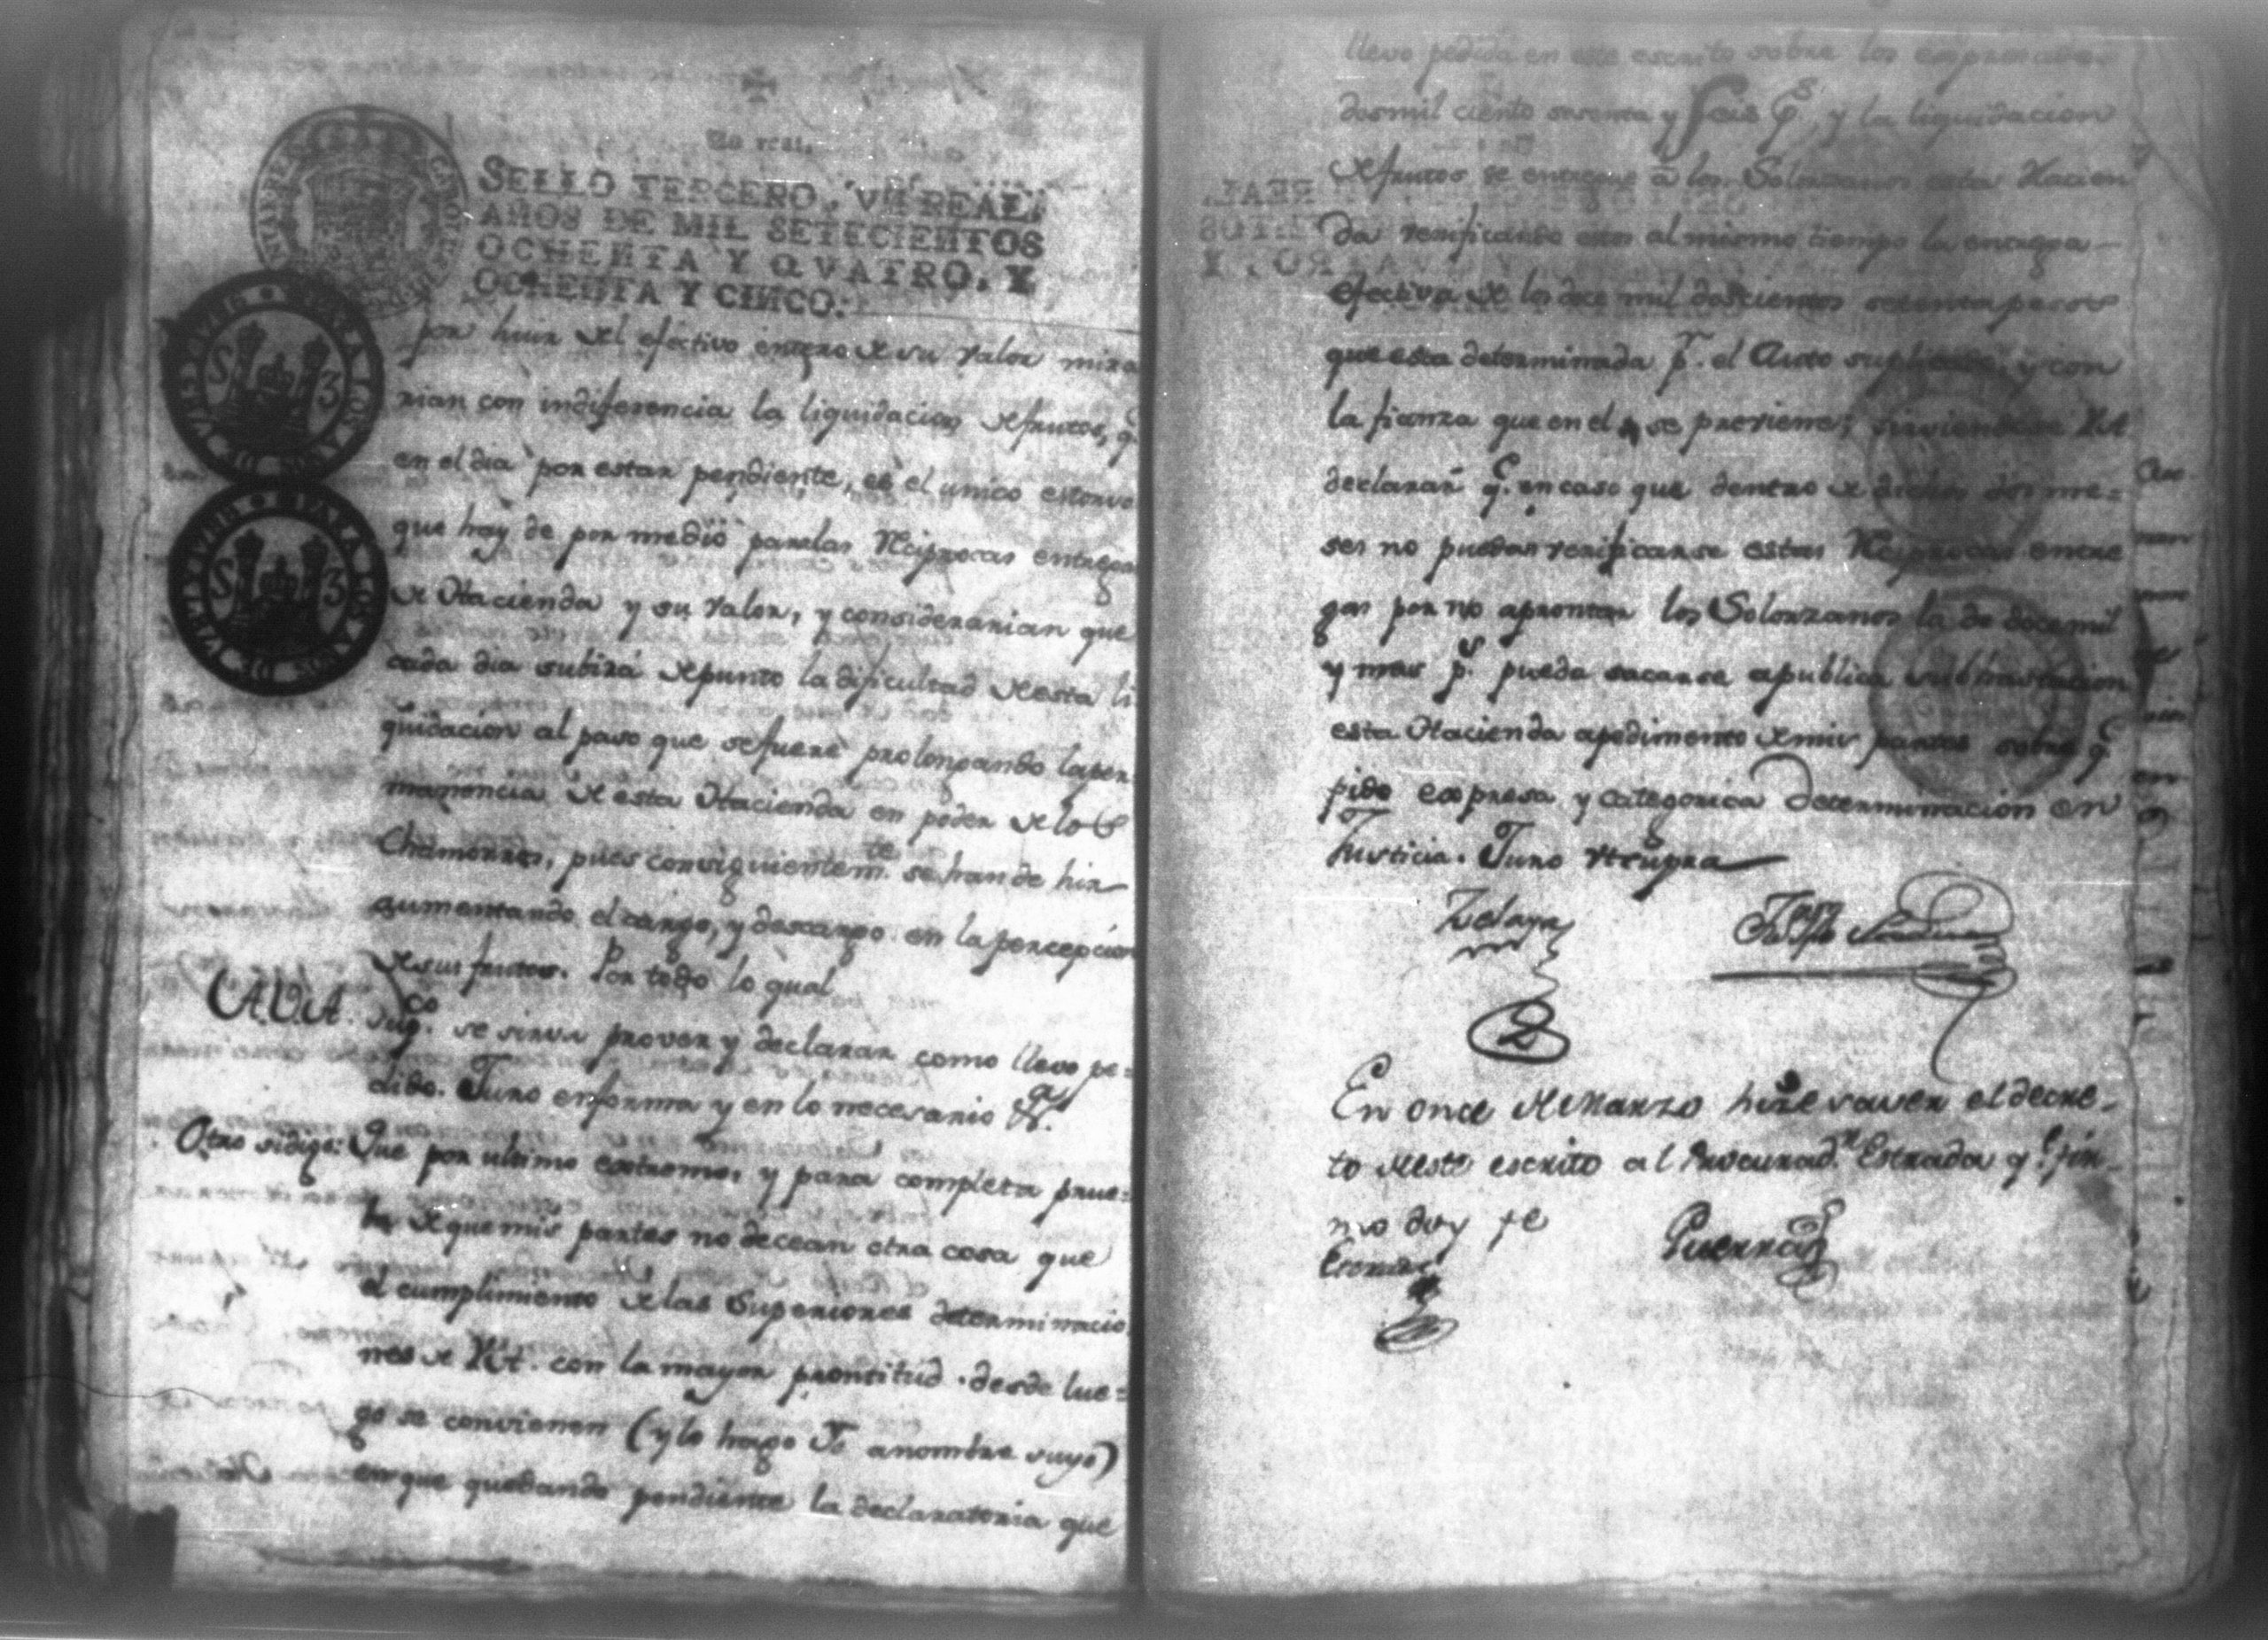 Un real.
SELLO TERCERO, VN REAL,
AÑOS DE MIL SETECIENTOS
OCHENTA Y QVATRO, Y
OCHENTA Y CINCO.
S 3
S 3
por huir del efectivo entero de su valor mira
rian con indiferencia la liquidacion de frutos, q.
en el dia por estar pendiente, es el unico estorvo
que hay de por medio para las Reciprocas entregas
de Hacienda y su valor, y considerarian que
cada dia subirá de punto la dificultad de esta li
quidacion al paso que se fuere prolongando la per
manencia de esta Hacienda en poder de los
Chamorros, pues consiguientem.te se han de hir
aumentando el cargo, y descargo en la percepcion
de sus frutos. Por todo lo qual
A.V.A. sup.co se sirva prover y declarar como llevo pe=
dido. Juro en forma y en lo necesario &.a
Otro si digo: Que por ultimo extremo, y para completa prue=
ba de que mis partes no decean otra cosa que
el cumplimiento de las Superiores determinacio
nes de V.A. con la mayor prontitud desde lue=
go se convienen (y lo hago Yo a nombre suyo)
en que quedando pendiente la declaratoria que
llevo pedida en este escrito sobre los expresados
dosmil ciento sesenta y seis p.s, y la liquidacion
de frutos se entregue á los Solorzanos esta Hacien
da verificando estos al mismo tiempo la entrega
efectiva de los doce mil doscientos setenta pesos
que esta determinada p.r el Auto suplicado, y con
la fianza que en el se previene; sirviendose V.A.
declarar q.e en caso que dentro de dichos dos me=
ses no puedan verificarse estas Reciprocas entre
gas por no aprontar los Solorzanos la de doce mil
y mas p.s pueda sacarse a publica subhastacion
esta Hacienda a pedimento de mis partes sobre q.e
pido expresa y categorica determinacion en
Justicia. Juro ut supra
Zelaya
En once de Marzo hize saver el decre-
to de este escrito al Procurad.r Estrada y fir
mo doy fe
Estrada
Guerra